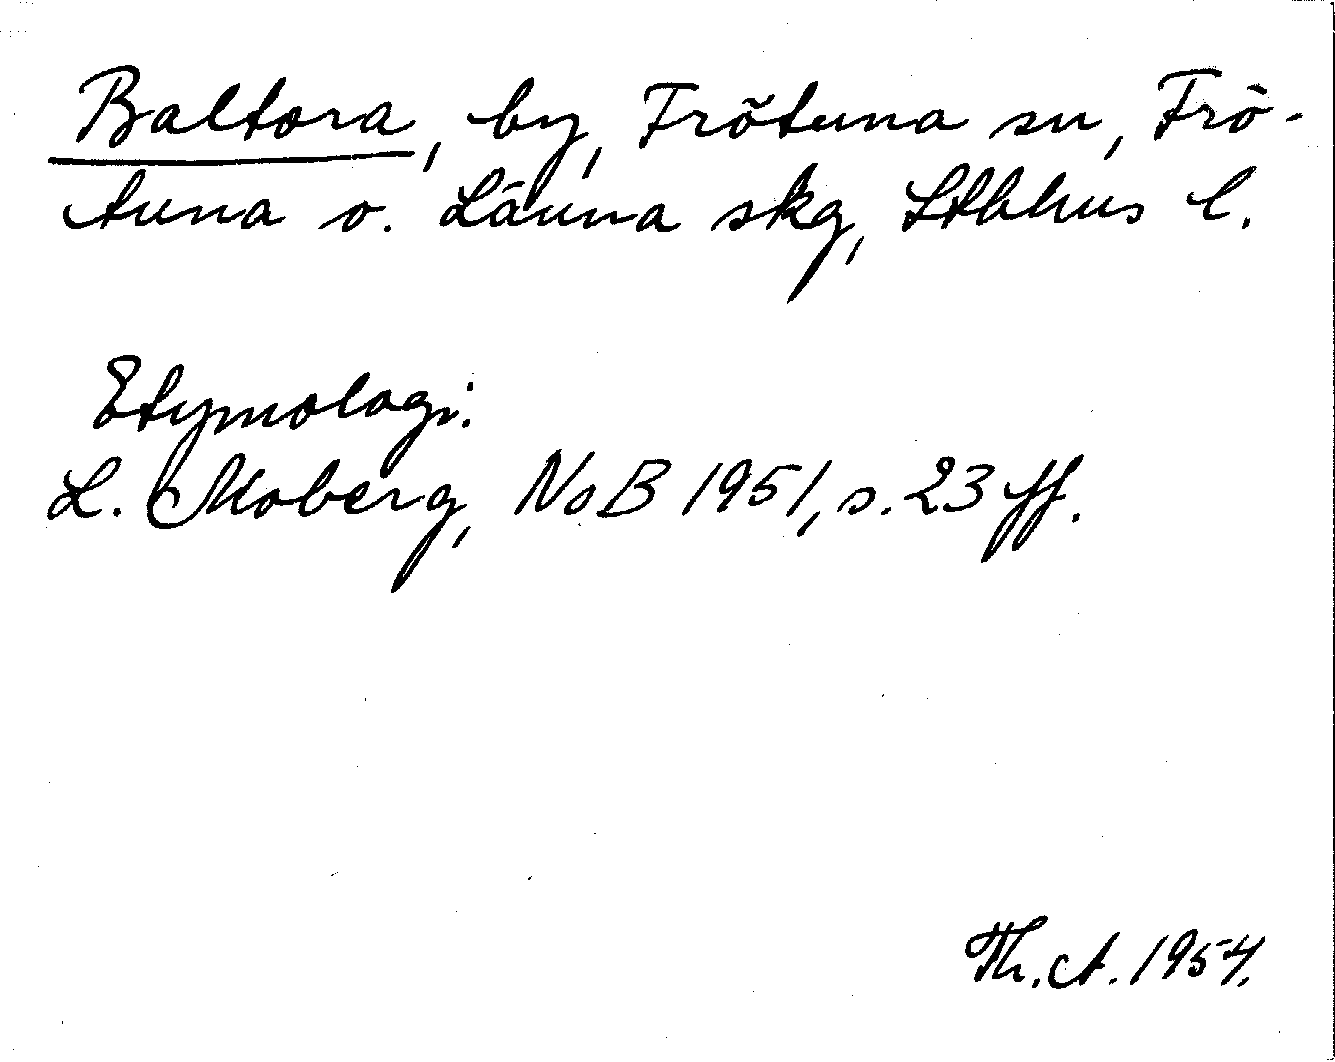 Baltora, by, Frötuna sn, Frö-
tuna o. Länna skg, Stbhus l.
Etymologi:
L. Moberg, NoB 1951, s. 23 ff.
Th. A. 1954.